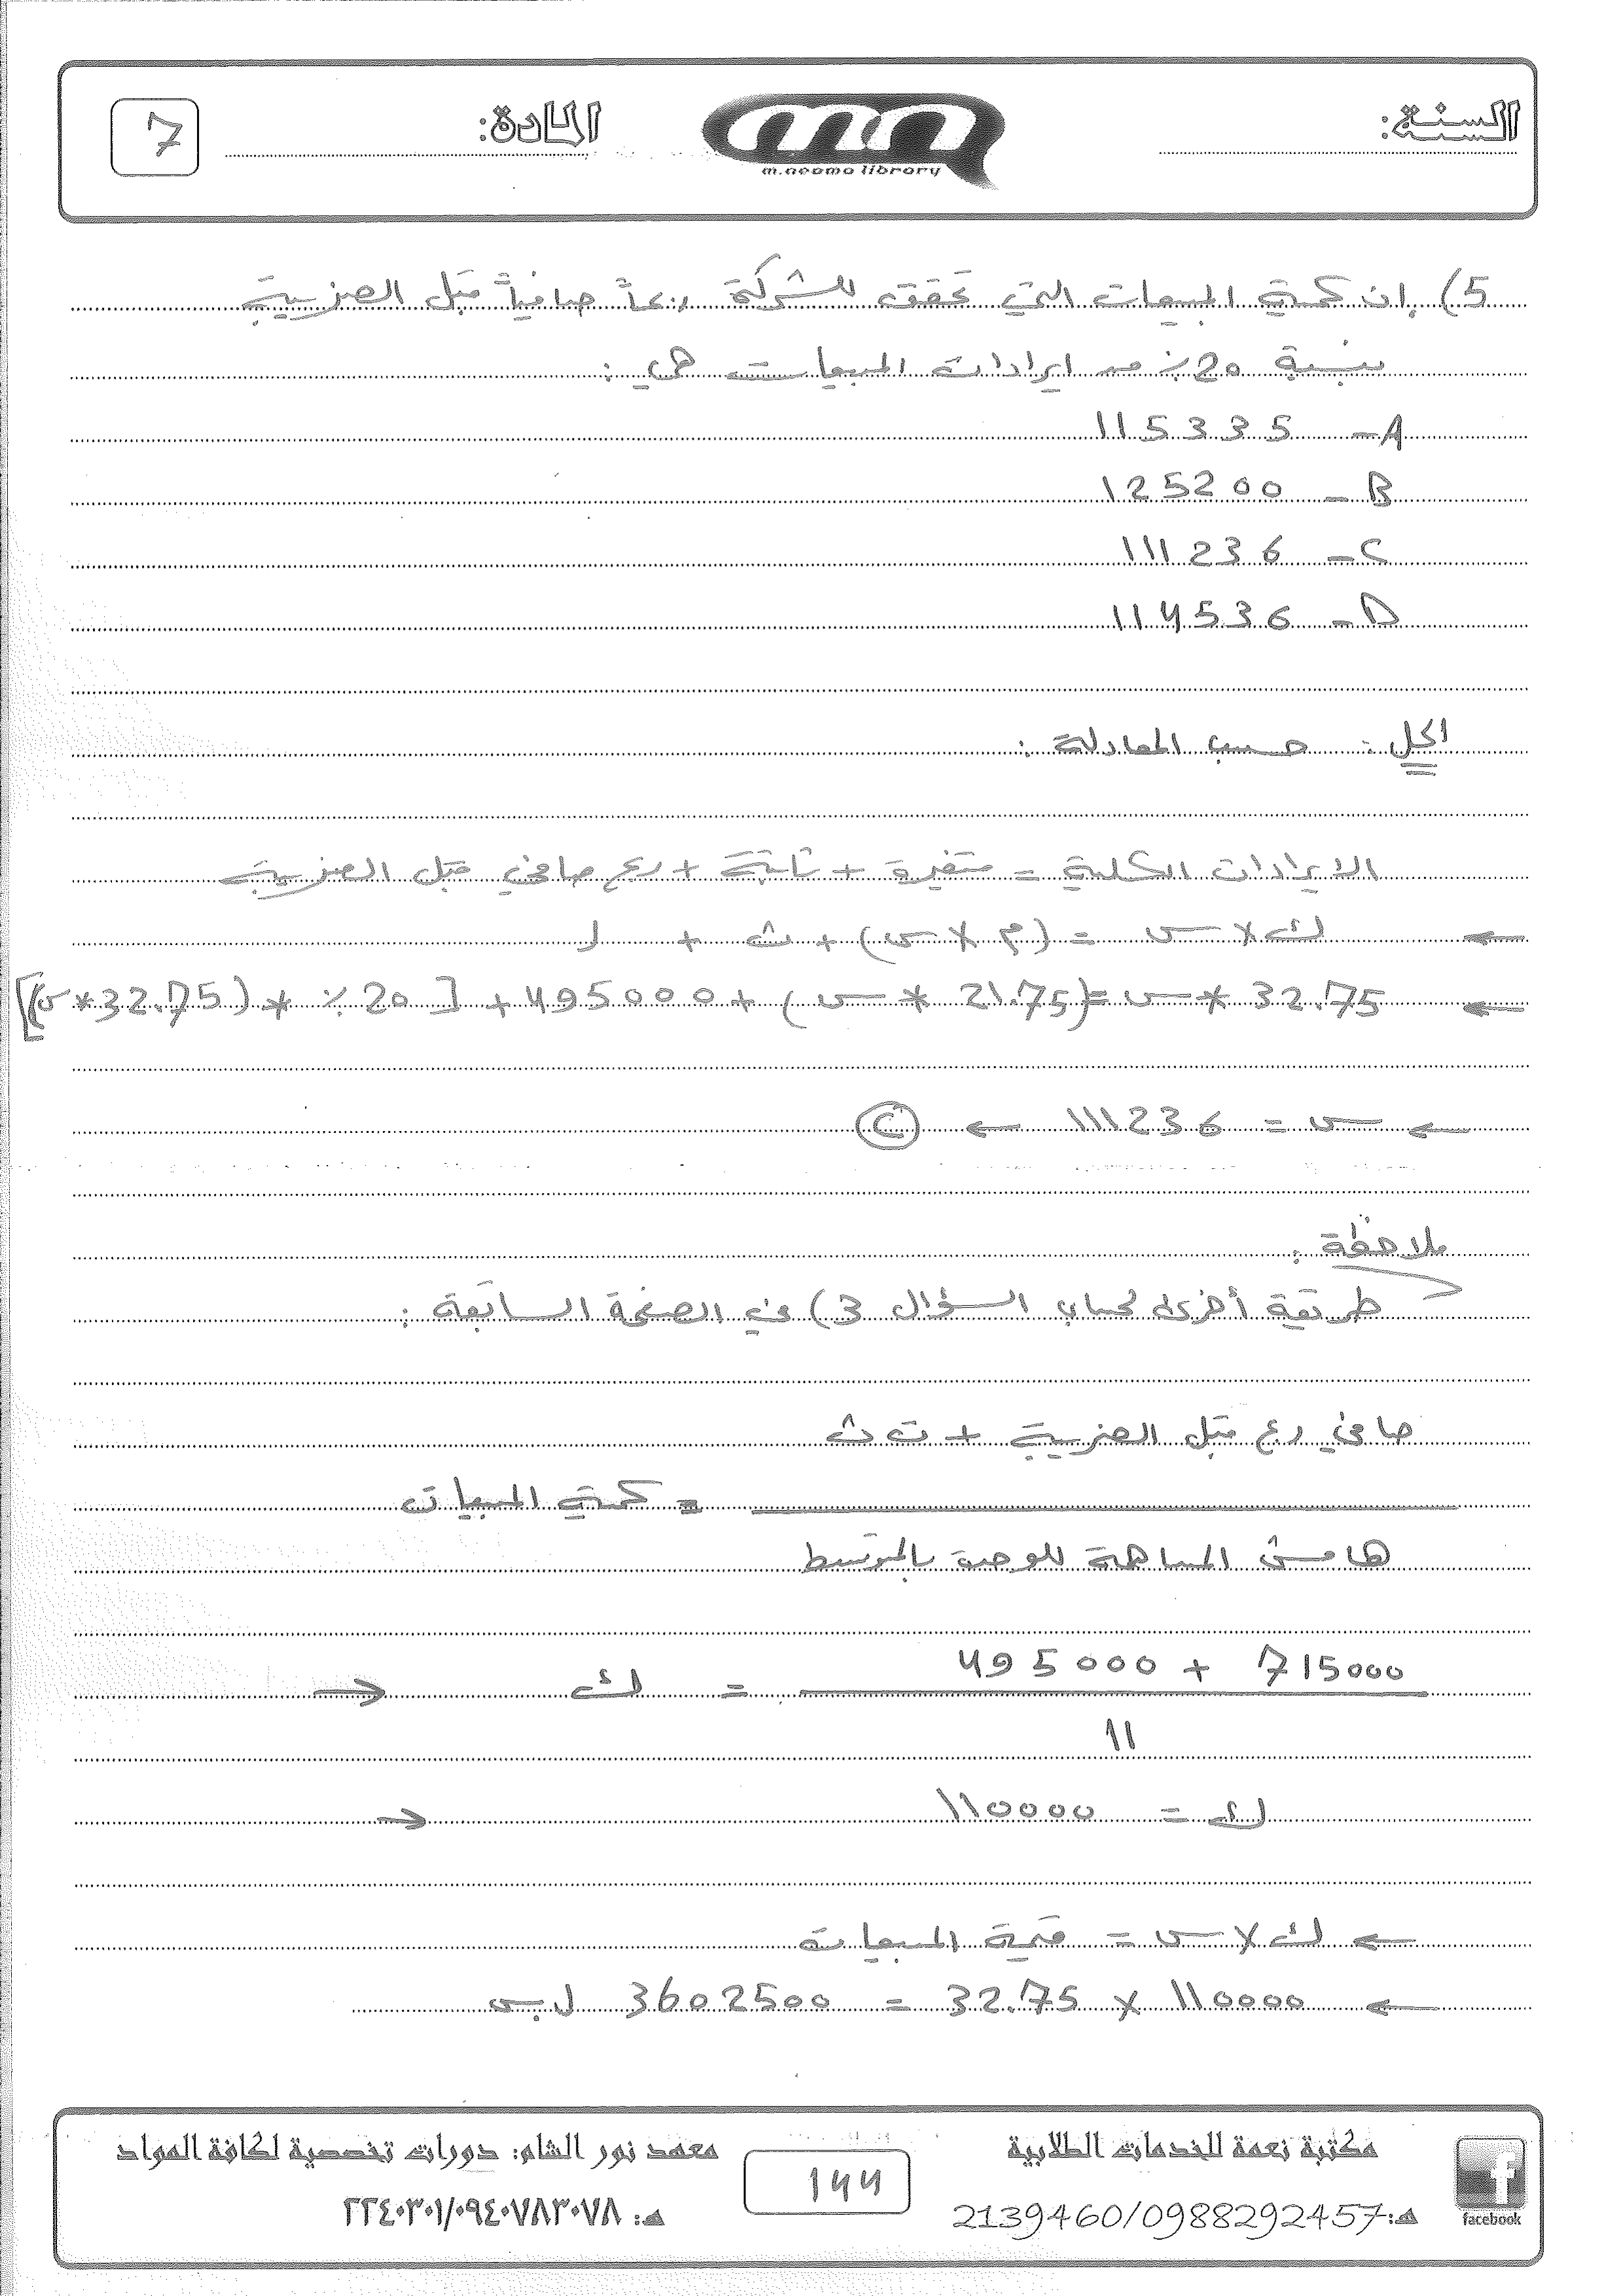 السنة:
m.neama library
المادة:
7
5) إن كمية المبيعات التي تحقق للشركة ربحاً صافياً قبل الضريبة
بنسبة 20٪ من ايرادات المبيعات هي :
A- 115335
B- 125200
C- 111236
D- 114536
الحل : حسب المعادلة :
الايرادات الكلية = متغيرة + ثابتة + ربح صافي قبل الضريبة
← ك × س = (م × س) + ث + ر
← 32.75 * س = (21.75 * س) + 495000 + [20٪ * (32.75 * س)]
← س = 111236 ← C
ملاحظة :
طريقة أخرى لحساب السؤال 3) في الصفحة السابقة :
صافي ربح قبل الضريبة + ت ث
= كمية المبيعات
هامش المساهمة للوحدة بالمتوسط
715000 + 495000
= ك →
11
ك = 110000 →
← ك × س = قيمة المبيعات
← 110000 × 32.75 = 3602500 ل.س
مكتبة نعمة للخدمات الطلابية
هـ: 2139460/0988292457
facebook
144
معهد نور الشام: دورات تخصصية لكافة المواد
هـ: ٢٢٤٠٣٠١/٠٩٤٠٧٨٣٠٧٨